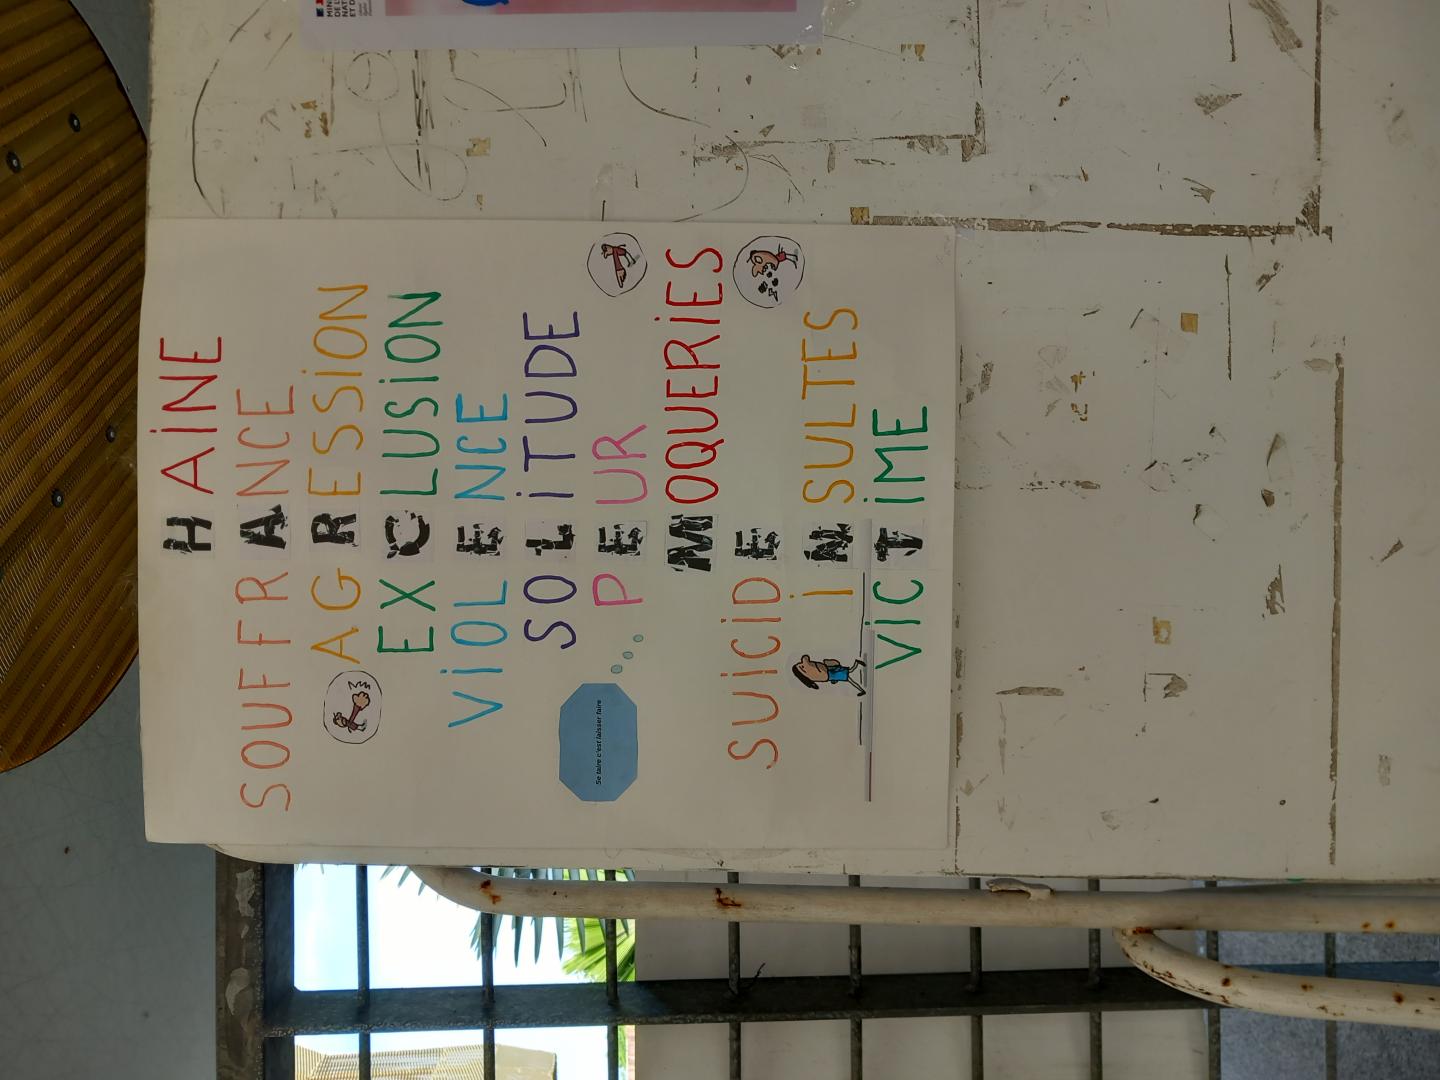 HAINE
SOUFFRANCE
AGRESSION
EXCLUSION
VIOLENCE
SOLITUDE
PEUR
Se taire c'est laisser faire
MOQUERIES
SUICIDE
INSULTES
VICTIME